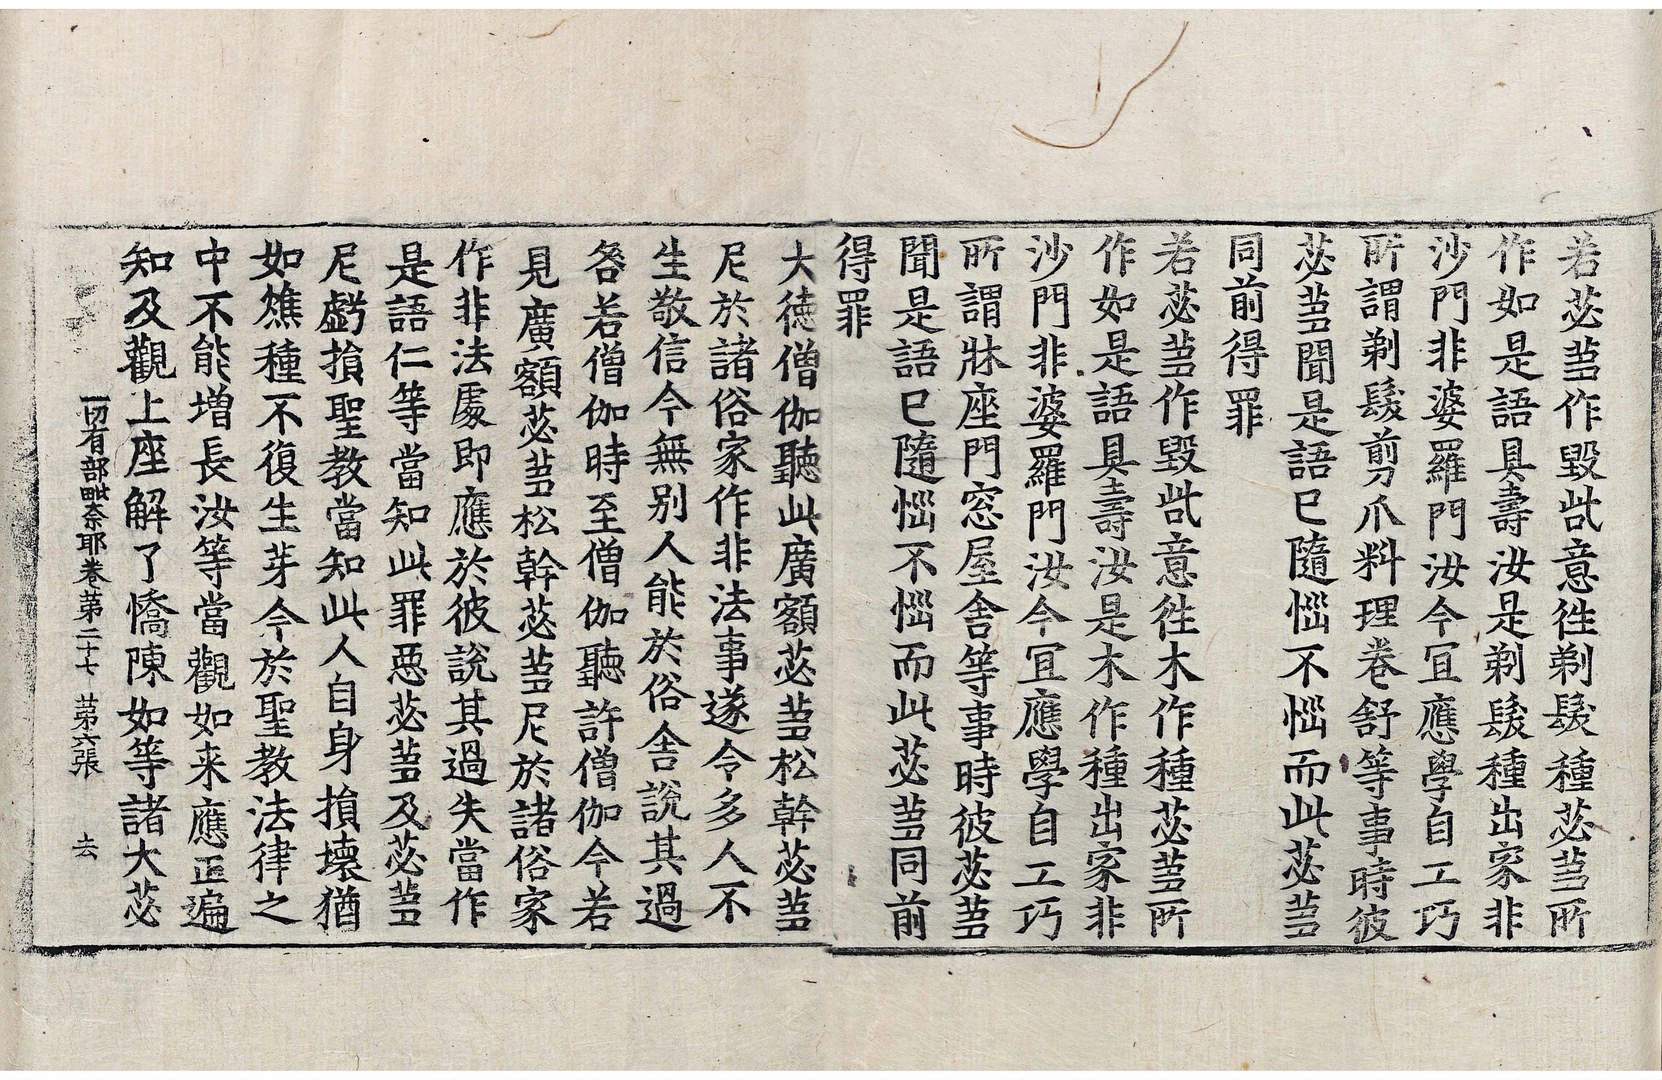 若苾芻作毀呰意往剃髮種苾芻所
作如是語具壽汝是剃髮種出家非
沙門非婆羅門汝今宜應學自工巧
所謂剃髮剪爪料理卷舒等事時彼
苾芻聞是語已隨惱不惱而此苾芻
同前得罪
若苾芻作毀呰意往木作種苾芻所
作如是語具壽汝是木作種出家非
沙門非婆羅門汝今宜應學自工巧
所謂牀座門窓屋舍等事時彼苾芻
聞是語已隨惱不惱而此苾芻同前
得罪
大德僧伽聽此廣額苾芻松幹苾芻
尼於諸俗家作非法事遂令多人不
生敬信今無別人能於俗舍說其過
咎若僧伽時至僧伽聽許僧伽今若
見廣額苾芻松幹苾芻尼於諸俗家
作非法處即應於彼說其過失當作
是語仁等當知此罪惡苾芻及苾芻
尼虧損聖教當知此人自身損壞猶
如燋種不復生芽今於聖教法律之
中不能增長汝等當觀如来應正遍
知及觀上座解了憍陳如等諸大苾
一切有部毗奈耶卷苐二十七 苐六張 去